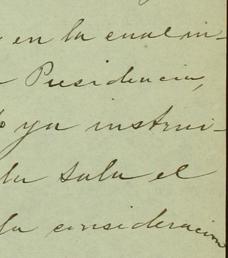 en la cual in-
Presidencia,
ya instrui-
la sala el
la consideracion